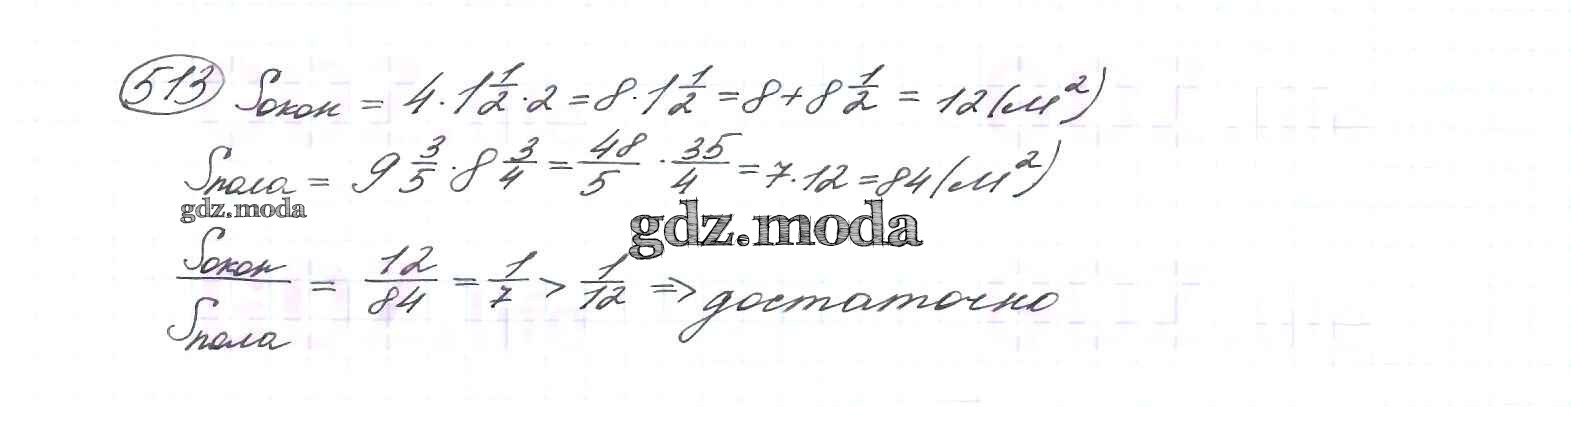 513 Sокон = 4·1 1/2·2 = 8·1 1/2 = 8+8 1/2 = 12 (м²)
Sпола = 9 3/5·8 3/4 = 48/5·35/4 = 7·12 = 84 (м²)
gdz.moda
gdz.moda
Sокон/Sпола = 12/84 = 1/7 > 1/12 => достаточно